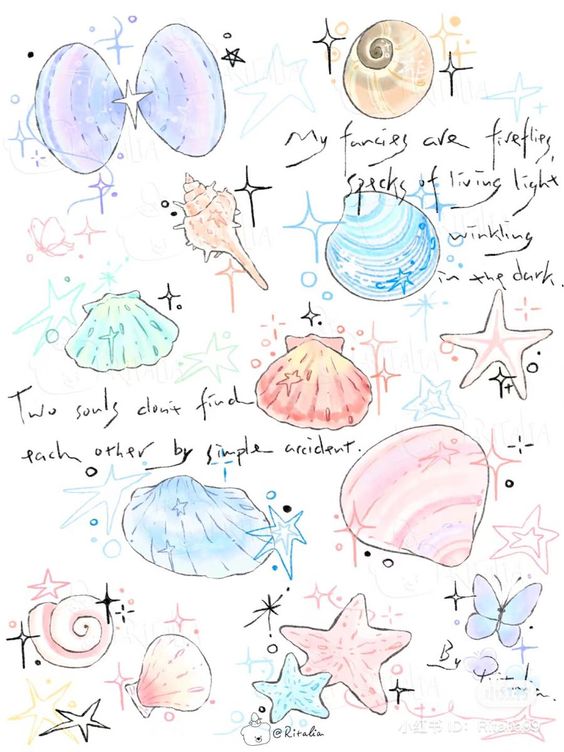 My fancies are fireflies,
specks of living light
winkling
in the dark.
Two souls don't find
each other by simple accident.
By
@Ritalia
小红书 ID: